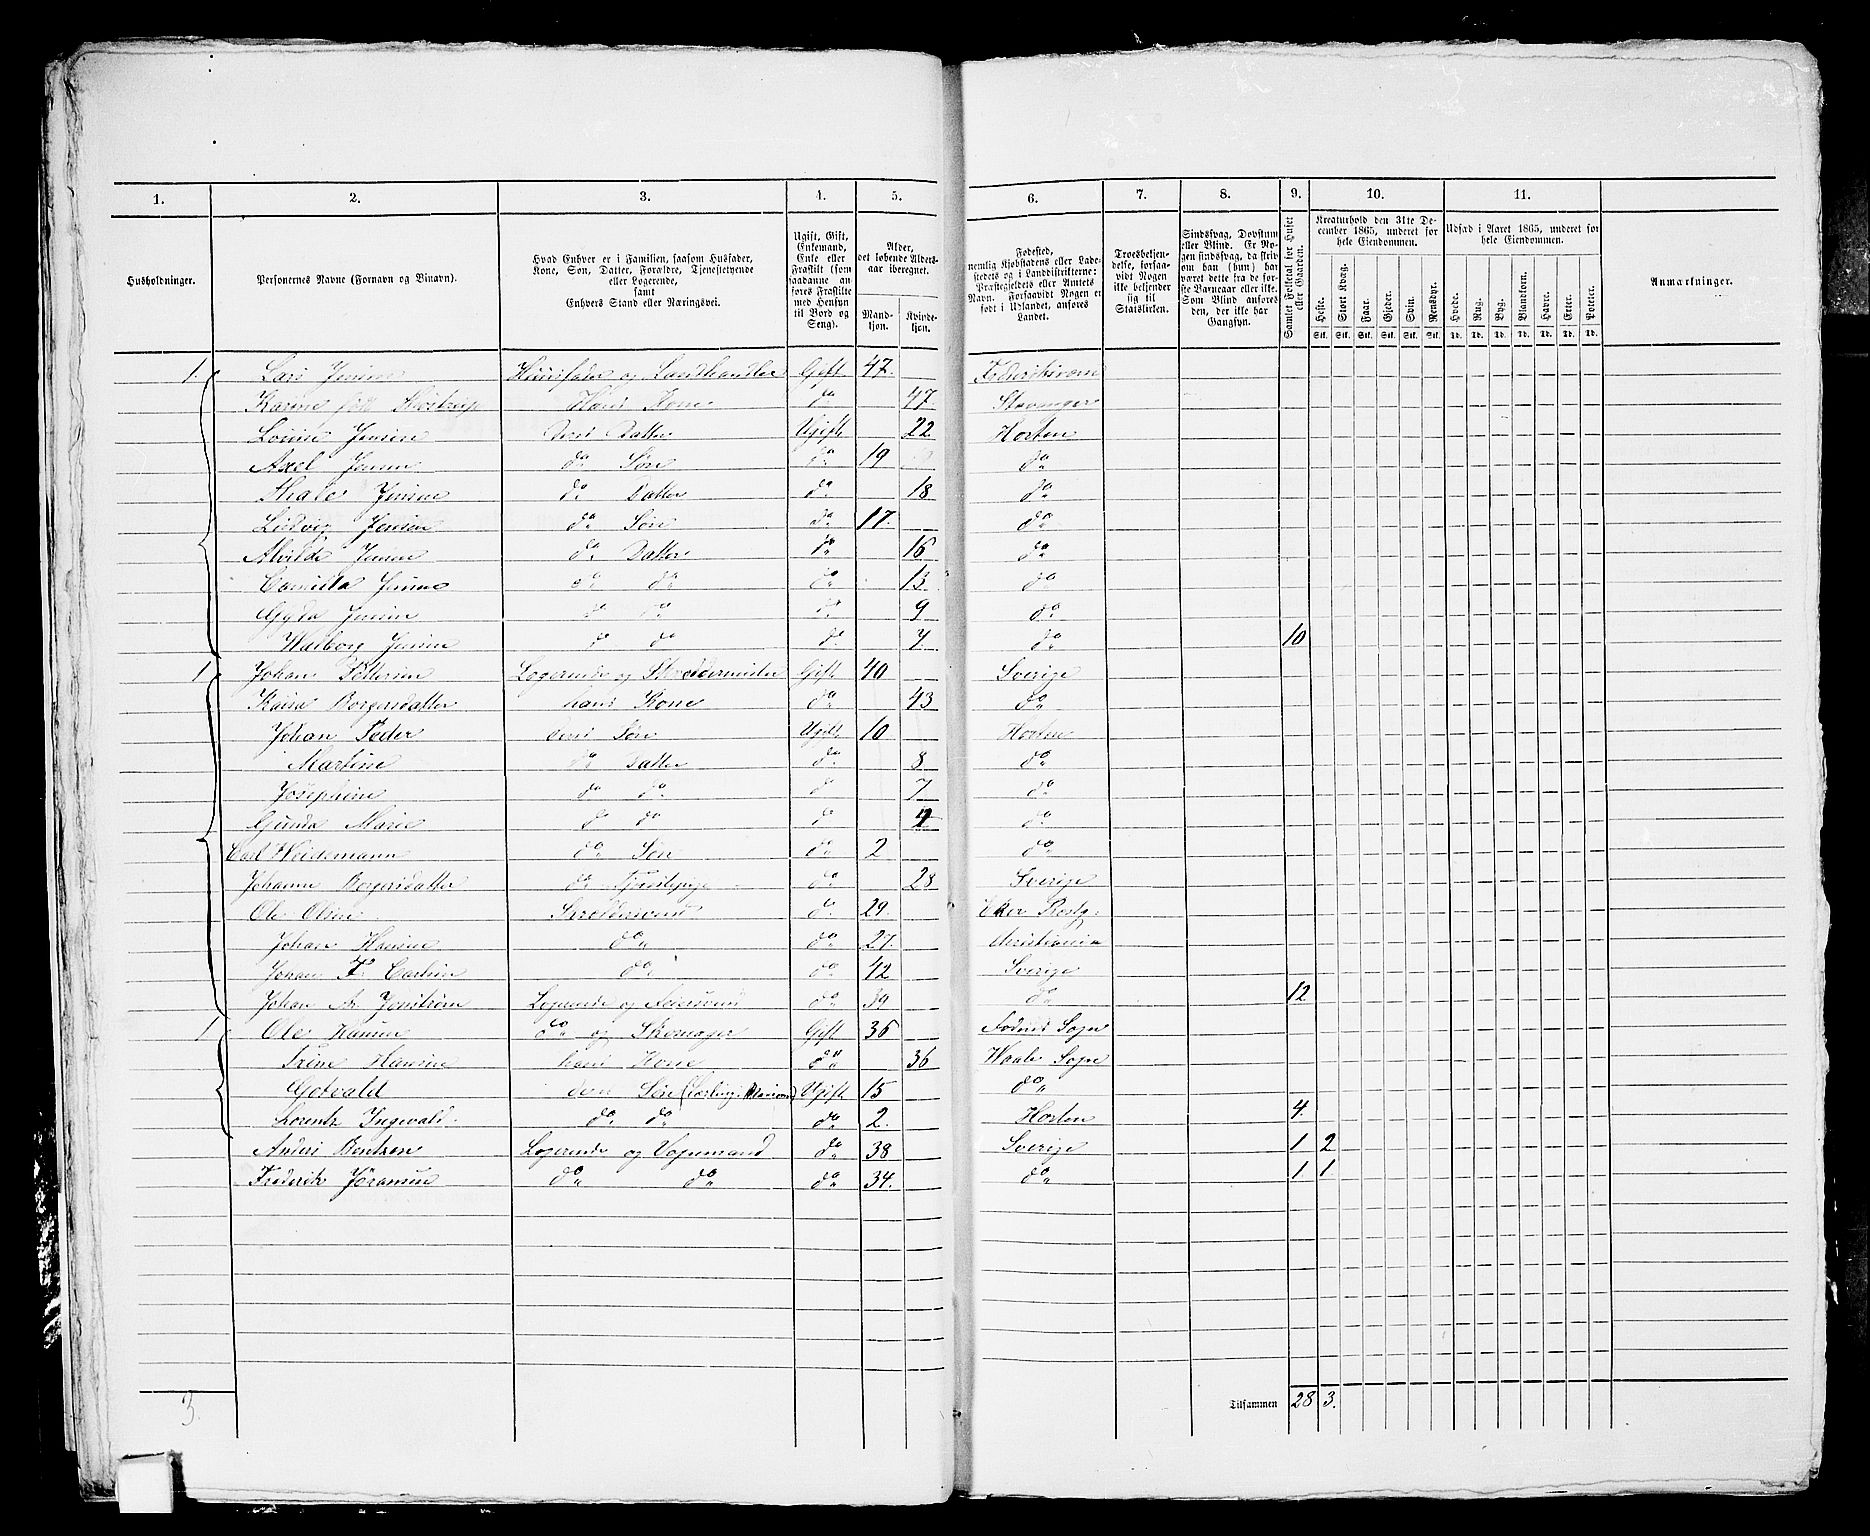 1. 2. 3. 4. 5. 6. 7. 8. 9. 10. 11.
Husholdninger.
Personernes Navne (Fornavn og Binavn).
Hvad Enhver er i Familien, saasom Husfader,
Kone, Søn, Datter, Forældre, Tjenestetyende
eller Logerende,
samt
Enhvers Stand eller Næringsvei.
Ugift, Gift,
Enkemand,
Enke eller
Fraskilt (som
saadanne an-
føres Fraskilte
med Hensyn
til Bord og
Seng).
Alder,
det løbende Alders-
aar iberegnet.
Mand-
kjøn.
Kvinde-
kjøn.
Fødested,
nemlig Kjøbstadens eller Lade-
stedets og i Landdistrikterne:
Præstegjeldets eller Amtets
Navn. Forsaavidt Nogen er
født i Udlandet, anføres
Landet.
Troesbekjen-
delse, forsaa-
vidt Nogen
ikke bekjender
sig til
Statskirken.
Sindssvag, Døvstum
eller Blind. Er No-
gen sindssvag, da skriv
om han (hun) har
været dette fra de før-
ste Barneaar eller ikke.
Som Blind anføres
den, der ikke har
Gangsyn.
Samlet Folketal for Huset
eller Gaarden.
Kreaturhold den 31te De-
cember 1865, underet for
hele Eiendommen.
Heste. Stort Kvæg. Faar. Gjeder. Svin. Rensdyr.
Stk. Stk. Stk. Stk. Stk. Stk.
Udsæd i Aaret 1865, underet for
hele Eiendommen.
Hvede. Rug. Byg. Blandkorn. Havre. Erter. Poteter.
Td. Td. Td. Td. Td. Td. Td.
Anmærkninger.
1. Lars Jensen Huusfader og Landhandler Gift 47. Fredriksværn
Karine Hans Kone do 47 Stavanger
Louise Jensen Deres Datter Ugift 22 Horten
Axel Jensen do Søn do 19 do
Thale Jensen do Datter do 18 do
Ludvig Jensen do Søn do 17. do
Alvilde Jensen do Datter do 16 do
Camilla Jensen do do do 13 do
Gyda Jensen do do do 9 do
Walborg Jensen do do do 7. do 10
1 Johan Pettersen Logerende og Skreddermester Gift 40 Sverige
Kaisa Borgersdatter hans Kone do 43 do
Johan Peder deres Søn Ugift 10 Horten
Martine do Datter do 8 do
Josephine do do do 7 do
Gunda Marie do do do 4 do
Carl Weidemann do Søn do 2 do
Johanne Borgersdatter do Tjenstepige do 28 Sverige
Ole Olsen Skreddersvend do 29. Eker Præstg:
Johan Hansen do do 27. Christiania
Johan F. Carlsen do do 42 Sverige
Johan Ar. Jonstrøm Logerende og do 39 do 12
1 Ole Hansen do og Skomager Gift 36 Sogn
Trine Hansen hans Kone do 36 Waale Sogn
Gotvald deres Søn Ugift 15 do
Lorents Ingevald. do do do 2. Horten 4.
Anders Bentsen Logerende og Vognmand do 38 Sverige 1 2
Frederik Jöransen do do do 34. do 1 1.
3.
Tilsammen 28 3.